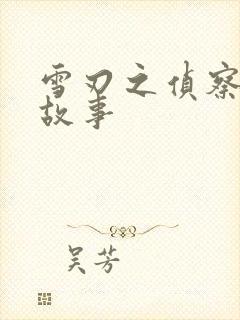 雪刃之偵察
故事
吴芳